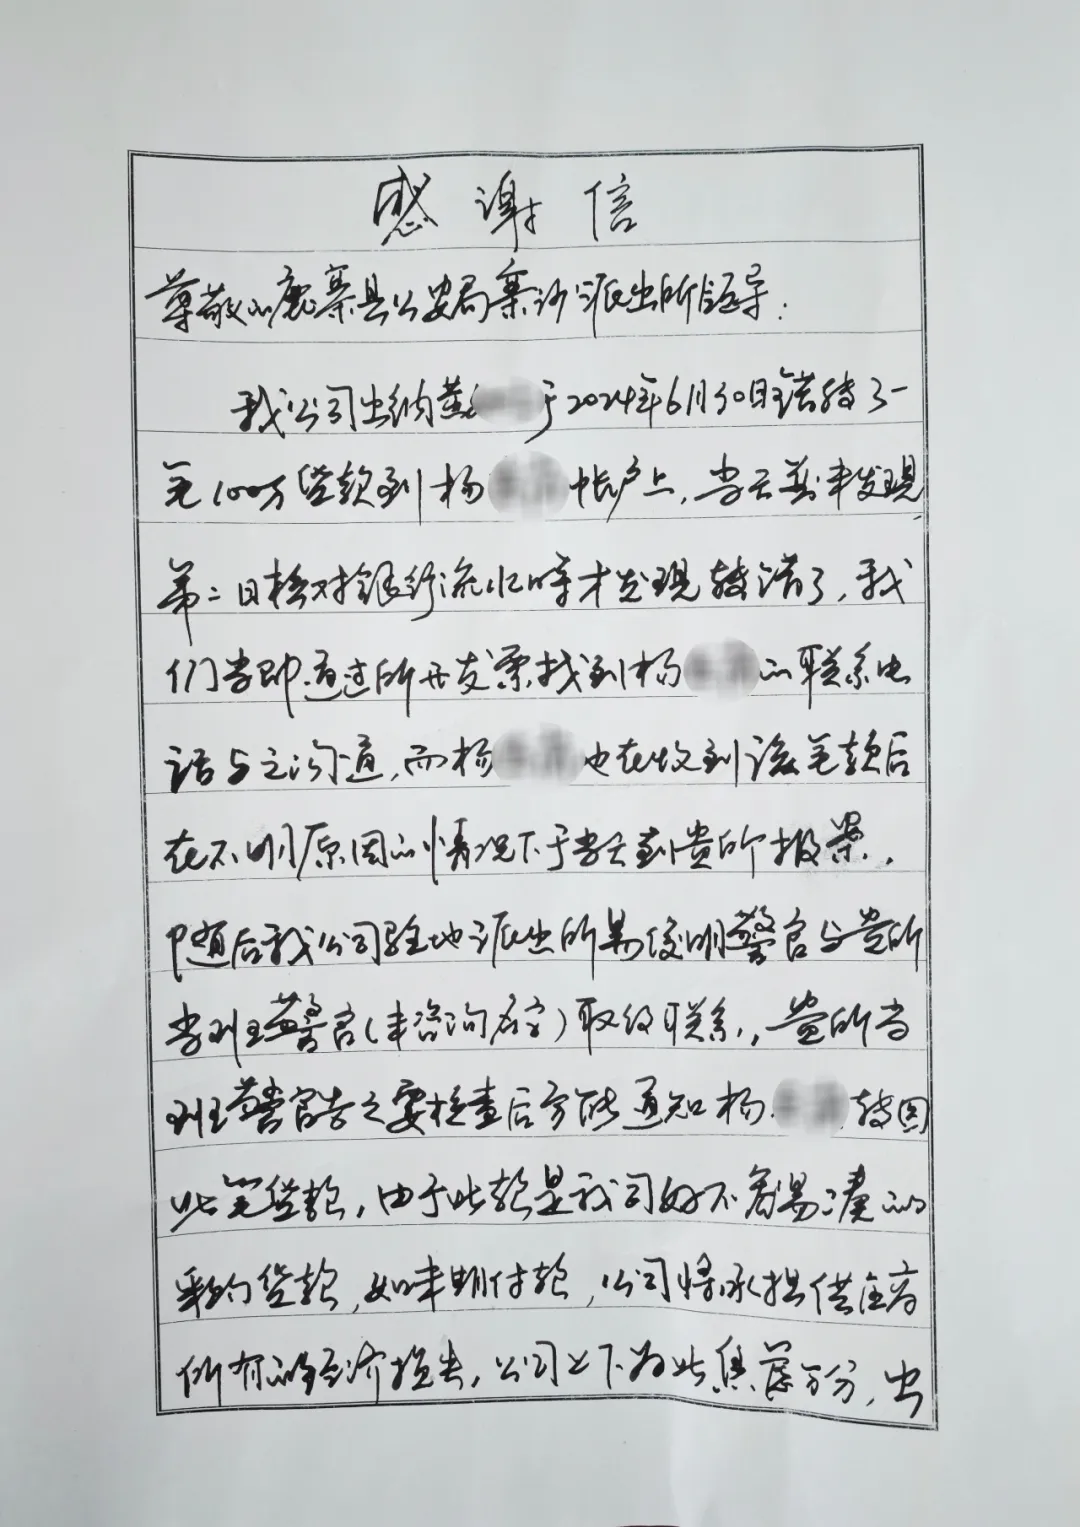 感谢信
尊敬的鹿寨县公安局寨沙派出所领导：
我公司出纳黄于2024年6月30日错转了一
笔100万货款到杨帐户上，当天并未发现，
第二日核对银行流水时才发现转错了，我
们当即通过所开发票找到杨的联系电
话与之沟通，而杨也在收到该笔款后
在不明原因的情况下于当天到贵所报案，
随后我公司驻地派出所易俊明警官与贵所
当班警官（未咨询名字）取得联系，贵所当
班警官告之要检查后方能通知杨转回
此笔货款，由于此款是我司好不容易凑的
采购货款，如未期付款，公司将承担供应商
所有的经济损失，公司上下为此焦虑万分，出